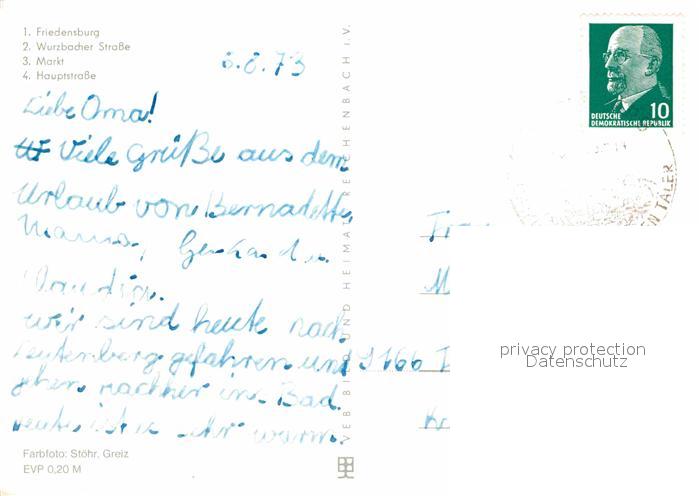 1. Friedensburg
2. Wurzbacher Straße
3. Markt
4. Hauptstraße
5.8.73
DEUTSCHE
DEMOKRATISCHE REPUBLIK
10
EN TÄLER
Liebe Oma!
Viele Grüße aus dem
Urlaub von Bernadette,
Mama,
Claudia.
wir sind heute nach
Leutenberg gefahren und
gehen nachher ins Bad.
heute ist warm.
VEB BILD UND HEIMAT REICHENBACH i.V.
privacy protection
Datenschutz
Farbfoto: Stöhr, Greiz
EVP 0,20 M